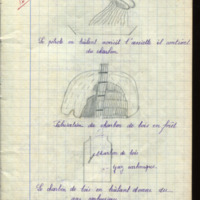 Le pétrole en brûlant noircit l'assiette il contient
du charbon
Fabrication du charbon de bois en forêt
charbon de bois
gaz carbonique
Le charbon de bois en brûlant donne du
gaz carbonique